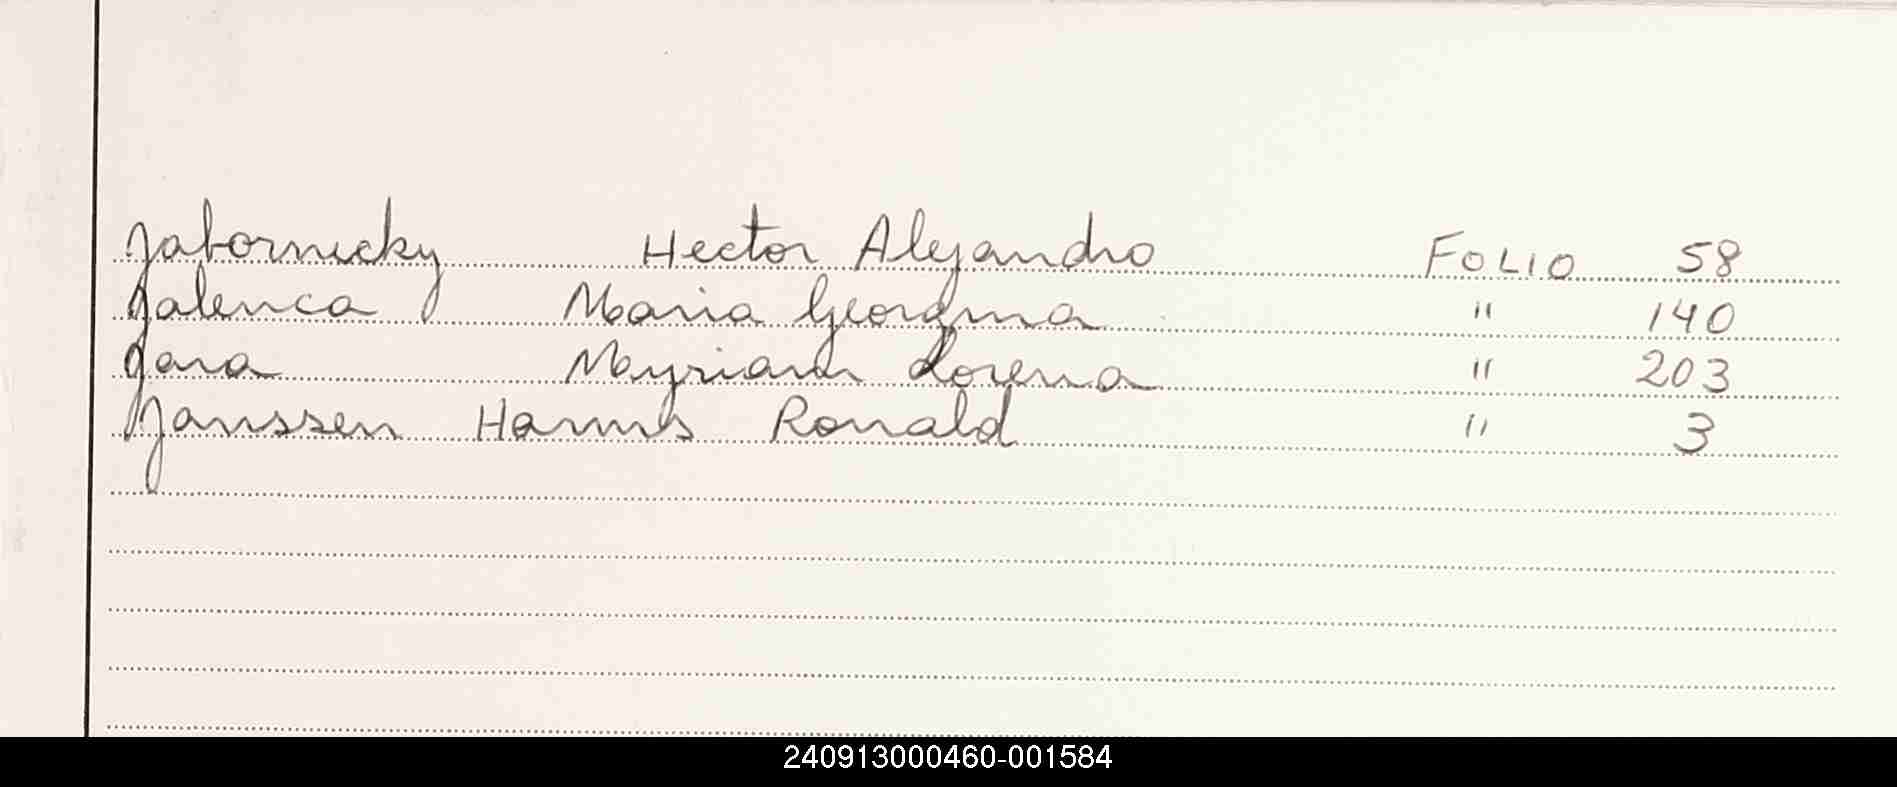 Jabornicky Hector Alejandro FOLIO 58
Jalenca Maria Georgina " 140
Jara Myriam Lorena " 203
Janssen Harms Ronald " 3
240913000460-001584